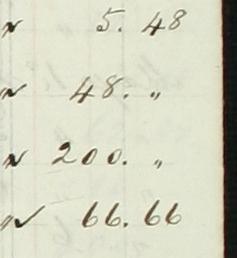 " 5. 48
" 48. "
" 200. "
" 66.66